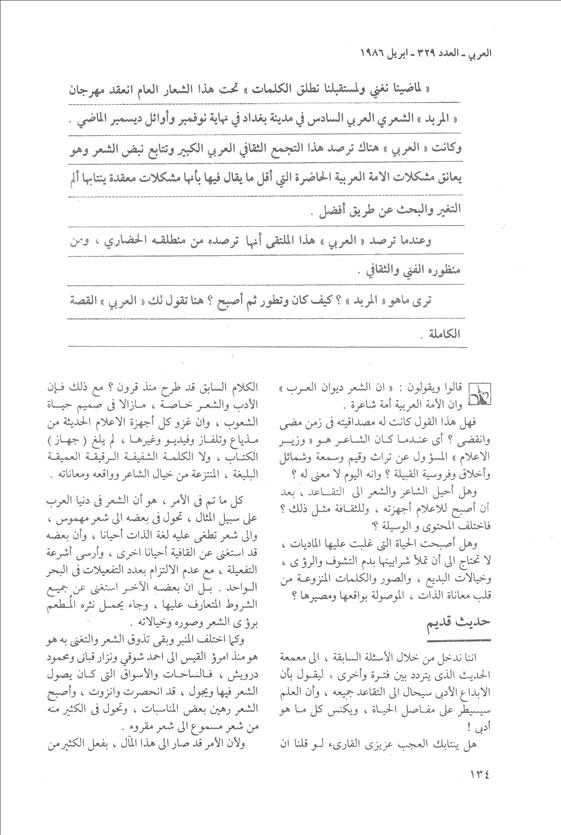 العربي - العدد ٣٢٩ - ابريل ١٩٨٦
« لماضينا نغني ولمستقبلنا نطلق الكلمات » تحت هذا الشعار العام انعقد مهرجان
« المربد » الشعري العربي السادس في مدينة بغداد في نهاية نوفمبر وأوائل ديسمبر الماضي .
وكانت « العربي » هناك ترصد هذا التجمع الثقافي العربي الكبير وتتابع نبض الشعر وهو
يعانق مشكلات الامة العربية الحاضرة التي أقل ما يقال فيها بأنها مشكلات معقدة ينتابها ألم
التغير والبحث عن طريق أفضل .
وعندما ترصد « العربي » هذا الملتقى أنها ترصده من منطلقه الحضاري ، ومن
منظوره الفني والثقافي .
ترى ماهو « المربد » ؟ كيف كان وتطور ثم أصبح ؟ هنا تقول لك « العربي » القصة
الكاملة .
قالوا ويقولون : « ان الشعر ديوان العرب »
وان الأمة العربية أمة شاعرة .
فهل هذا القول كانت له مصداقيته في زمن مضى
وانقضى ؟ أى عندما كان الشاعر هو « وزير
الاعلام » المسؤول عن تراث وقيم وسمعة وشمائل
وأخلاق وفروسية القبيلة ؟ وانه اليوم لا معنى له ؟
وهل أحيل الشاعر والشعر الى التقاعد ، بعد
أن أصبح للاعلام أجهزته ، وللثقافة مثل ذلك ؟
فاختلف المحتوى و الوسيلة ؟
وهل أصبحت الحياة التى غلبت عليها الماديات ،
لا تحتاج الى أن تملأ شرايينها بدم التشوف والرؤى ،
وخيالات البديع ، والصور والكلمات المنزوعة من
قلب معاناة الذات ، الموصولة بواقعها ومصيرها ؟
حديث قديم
اننا ندخل من خلال الأسئلة السابقة ، الى معمعة
الحديث الذى يتردد بين فترة وأخرى ، ليقول بأن
الابداع الأدبى سيحال الى التقاعد جميعه ، وأن العلم
سيسيطر على مفاصل الحياة ، ويكنس كل ما هو
أدبى !
هل ينتابك العجب عزيزى القارىء لو قلنا ان
الكلام السابق قد طرح منذ قرون ؟ مع ذلك فإن
الأدب والشعر خاصة ، مازالا في صميم حياة
الشعوب ، وان غزو كل أجهزة الاعلام الحديثة من
مذياع وتلفاز وفيديو وغيرها ، لم يلغ ( جهاز )
الكتاب ، ولا الكلمة الشفيفة الرقيقة العميقة
البليغة ، المنتزعة من خيال الشاعر وواقعه ومعاناته .
كل ما تم فى الأمر ، هو أن الشعر فى دنيا العرب
على سبيل المثال ، تحول فى بعضه الى شعر مهموس ،
والى شعر تطغى عليه لغة الذات أحيانا ، وأن بعضه
قد استغنى عن القافية أحيانا اخرى ، وأرسى أشرعة
التفعيلة ، مع عدم الالتزام بعدد التفعيلات فى البحر
الواحد . بل أن بعضه الآخر استغنى عن جميع
الشروط المتعارف عليها ، وجاء يحمل نثره المُطعم
برؤى الشعر وصوره وخيالاته .
وكما اختلف المنبر وبقى تذوق الشعر والتغنى به هو
هو منذ امرؤ القيس الى احمد شوقي ونزار قبانى ومحمود
درويش ، فالساحات والأسواق التى كان يصول
الشعر فيها ويجول ، قد انحصرت وانزوت ، وأصبح
الشعر رهين بعض المناسبات ، وتحول فى الكثير منه
من شعر مسموع الى شعر مقروء .
ولأن الأمر قد صار الى هذا المآل ، بفعل الكثير من
١٣٤